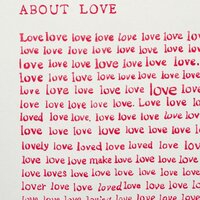 ABOUT LOVE
Love love love love love love love lo
love love love love love love love
love love love love love love love.
love love love love love love love
love love love love love love love
love love love love love. Love love lo
loved love love love love love love
love love love love love love love
lovely love loved love loved love
love love love make love love love
love loves love love love love love
lover love love loved love love love
love love love love love love